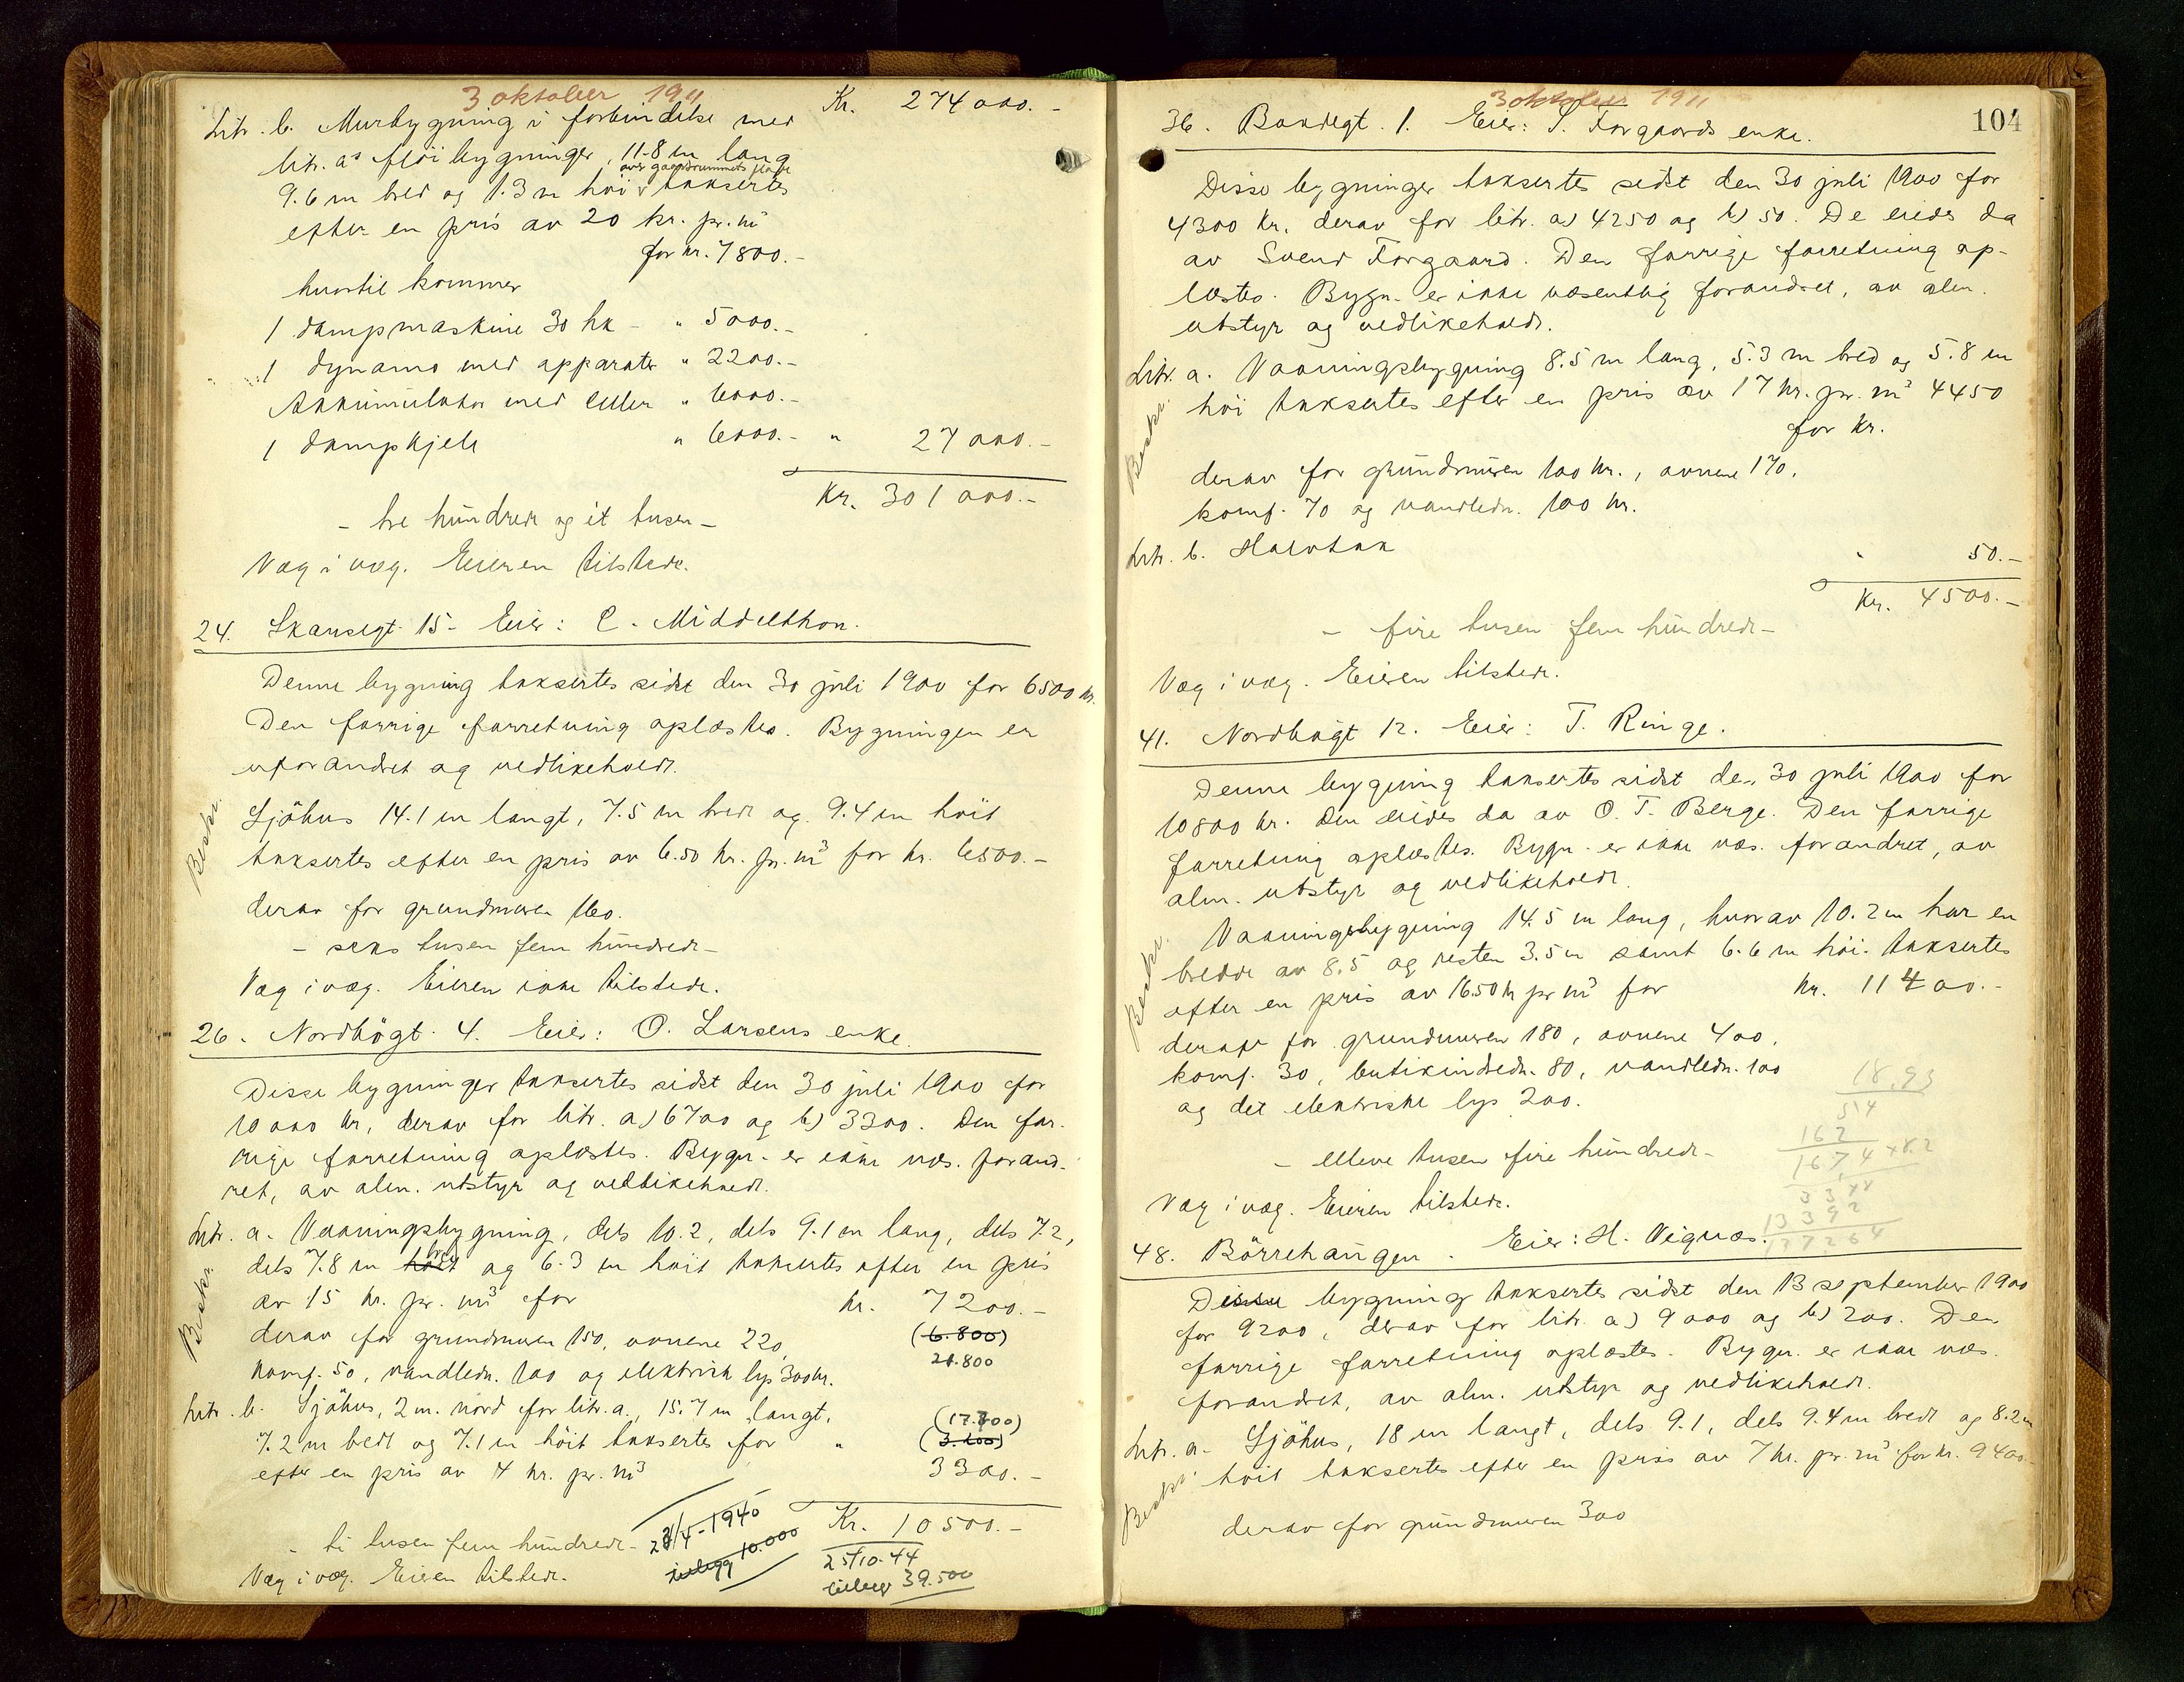 3 oktober 1911
Kr. 274000.-
Litr. b. Murbygning i forbindelse med
litr. a's fløibygninger, 11.8 m lang
over gaardsrummets plan
9.6 m bred og 7.3 m høi v taksertes
efter en pris av 20 kr. pr. m³
for kr. 7800.-
hvortil kommer
1 dampmaskine 30 hk - " 5000.-
1 dynamo med apparater " 2200.-
Akkumulator med celler " 6000.-
1 dampkjele " 6000.- " 27000.-
Kr. 301000.-
- tre hundrede og et tusen -
Væg i væg. Eieren tilstede.
24. Skansegt. 15. Eier: C. Middelthon.
Denne bygning taksertes sidst den 30 juli 1900 for 6500 kr.
Den forrige forretning oplæstes. Bygningen er
uforandret og vedlikeholdt.
Beskr.
Sjöhus 14.1 m langt, 7.5 m bredt og 9.4 m höit
taksertes efter en pris av 6.50 kr. pr. m³ for kr. 6500.-
derav for grundmuren 160.
- seks tusen fem hundrede -
Væg i væg. Eieren ikke tilstede.
26. Nordbögt. 4. Eier: O. Larsens enke.
Disse bygninger taksertes sidst den 30 juli 1900 for
10000 kr, derav for litr. a) 6700 og b) 3300. Den for-
rige forretning oplæstes. Bygn. er ikke væs. forand-
ret, av alm. utstyr og vedlikeholdt.
Litr. a. Vaaningsbygning, dels 10.2, dels 9.1 m lang, dels 7.2,
dels 7.8 m bred og 6.3 m höit taksertes efter en pris
Beskr.
av 15 kr. pr. m³ for kr. 7200.-
derav for grundmuren 150, ovnene 220, (6.800)
komf. 50, vandledn. 100 og elektrisk lys 300 kr. 21.800
Litr. b. Sjöhus, 2 m. nord for litr. a., 15.7 m langt, (17.700)
7.2 m bredt og 7.1 m höit taksertes for " (3.600)
efter en pris av 4 kr. pr. m³ 3300.-
Kr. 10500.-
- ti tusen fem hundrede - 28/4-1940
tillegg 10.000
25/10-44
tillegg 39.500
Væg i væg. Eieren tilstede.
3 oktober 1911
104
36. Bakkegt. 1. Eier: S. Torgaards enke.
Disse bygninger taksertes sidst den 30 juli 1900 for
4300 kr, derav for litr. a) 4250 og b) 50. De eiedes da
av Svend Torgaard. Den forrige forretning op-
læstes. Bygn. er ikke væsentlig forandret, av alm.
utstyr og vedlikeholdt.
Litr. a. Vaaningsbygning 8.5 m lang, 5.3 m bred og 5.8 m
Beskr.
höi taksertes efter en pris av 17 kr. pr. m³ 4450
for kr.
derav for grundmuren 100 kr., ovnene 170,
komf. 70 og vandledn. 100 kr.
Litr. b. Halvtak " 50.-
Kr. 4500.-
- fire tusen fem hundrede -
Væg i væg. Eieren tilstede.
41. Nordbögt 12. Eier: T. Ringe.
Denne bygning taksertes sidst den 30 juli 1900 for
10800 kr. Den eiedes da av O. T. Berge. Den forrige
forretning oplæstes. Bygn. er ikke væs. forandret, av
alm. utstyr og vedlikeholdt.
Beskr.
Vaaningsbygning 14.5 m lang, hvorav 10.2 m har en
bredde av 8.5 og resten 3.5 m samt 6.6 m höi. taksertes
efter en pris av 16.50 kr pr m³ for kr. 11400.-
derav for grundmuren 180, ovnene 400,
komf. 30, butikindredn. 80, vandledn. 100
og det elektriske lys 200.
18.93
514
162
167,4 x 8.2
3344
13392
137264
- elleve tusen fire hundrede -
Væg i væg. Eieren tilstede.
48. Börrehaugen. Eier: H. Vignæs.
Disse bygning taksertes sidst den 13 september 1900
for 9200, derav for litr. a) 9000 og b) 200. Den
forrige forretning oplæstes. Bygn. er ikke væs.
forandret, av alm. utstyr og vedlikeholdt.
Litr. a. Sjöhus, 18 m langt, dels 9.1, dels 9.4 m bredt og 8.2 m
Beskr.
höit taksertes efter en pris av 7 kr. pr. m³ for kr. 9400.-
derav for grundmuren 300